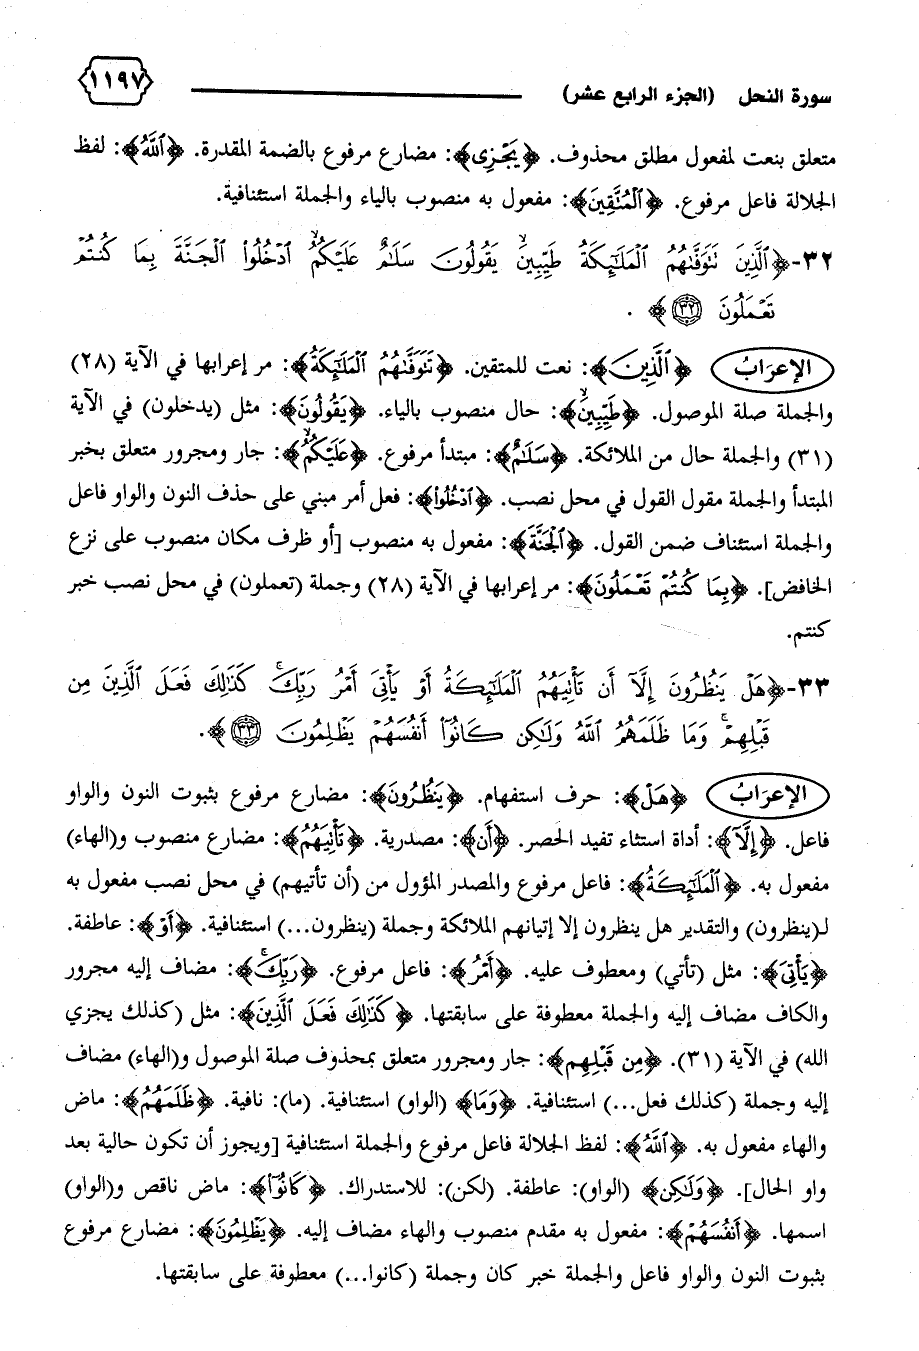 سورة النحل (الجزء الرابع عشر) ١١٩٧
متعلق بنعت لمفعول مطلق محذوف. ﴿يَجْزِى﴾: مضارع مرفوع بالضمة المقدرة. ﴿اللَّهُ﴾: لفظ
الجلالة فاعل مرفوع. ﴿الْمُتَّقِينَ﴾: مفعول به منصوب بالياء والجملة استئنافية.
٣٢-﴿الَّذِينَ تَتَوَفَّاهُمُ الْمَلَائِكَةُ طَيِّبِينَ يَقُولُونَ سَلَامٌ عَلَيْكُمُ ادْخُلُوا الْجَنَّةَ بِمَا كُنتُمْ
تَعْمَلُونَ ٣٢﴾.
الإعرَابُ ﴿الَّذِينَ﴾: نعت للمتقين. ﴿تَتَوَفَّاهُمُ الْمَلَائِكَةُ﴾: مر إعرابها في الآية (٢٨)
والجملة صلة الموصول. ﴿طَيِّبِينَ﴾: حال منصوب بالياء. ﴿يَقُولُونَ﴾: مثل (يدخلون) في الآية
(٣١) والجملة حال من الملائكة. ﴿سَلَامٌ﴾: مبتدأ مرفوع. ﴿عَلَيْكُمُ﴾: جار ومجرور متعلق بخبر
المبتدأ والجملة مقول القول في محل نصب. ﴿ادْخُلُوا﴾: فعل أمر مبني على حذف النون والواو فاعل
والجملة استئناف ضمن القول. ﴿الْجَنَّةَ﴾: مفعول به منصوب [أو ظرف مكان منصوب على نزع
الخافض]. ﴿بِمَا كُنتُمْ تَعْمَلُونَ﴾: مر إعرابها في الآية (٢٨) وجملة (تعملون) في محل نصب خبر
كنتم.
٣٣-﴿هَلْ يَنظُرُونَ إِلَّا أَن تَأْتِيَهُمُ الْمَلَائِكَةُ أَوْ يَأْتِيَ أَمْرُ رَبِّكَ كَذَٰلِكَ فَعَلَ الَّذِينَ مِن
قَبْلِهِمْ وَمَا ظَلَمَهُمُ اللَّهُ وَلَٰكِن كَانُوا أَنفُسَهُمْ يَظْلِمُونَ ٣٣﴾.
الإعرَابُ ﴿هَلْ﴾: حرف استفهام. ﴿يَنظُرُونَ﴾: مضارع مرفوع بثبوت النون والواو
فاعل. ﴿إِلَّا﴾: أداة استثاء تفيد الحصر. ﴿أَن﴾: مصدرية. ﴿تَأْتِيَهُمُ﴾: مضارع منصوب و(الهاء)
مفعول به. ﴿الْمَلَائِكَةُ﴾: فاعل مرفوع والمصدر المؤول من (أن تأتيهم) في محل نصب مفعول به
لـ(ينظرون) والتقدير هل ينظرون إلا إتيانهم الملائكة وجملة (ينظرون...) استئنافية. ﴿أَوْ﴾: عاطفة.
﴿يَأْتِيَ﴾: مثل (تأتي) ومعطوف عليه. ﴿أَمْرُ﴾: فاعل مرفوع. ﴿رَبِّكَ﴾: مضاف إليه مجرور
والكاف مضاف إليه والجملة معطوفة على سابقتها. ﴿كَذَٰلِكَ فَعَلَ الَّذِينَ﴾: مثل (كذلك يجزي
الله) في الآية (٣١). ﴿مِن قَبْلِهِم﴾: جار ومجرور متعلق بمحذوف صلة الموصول و(الهاء) مضاف
إليه وجملة (كذلك فعل...) استئنافية. ﴿وَمَا﴾ (الواو) استئنافية. (ما): نافية. ﴿ظَلَمَهُمُ﴾: ماض
والهاء مفعول به. ﴿اللَّهُ﴾: لفظ الجلالة فاعل مرفوع والجملة استئنافية [ويجوز أن تكون حالية بعد
واو الحال]. ﴿وَلَٰكِن﴾ (الواو): عاطفة. (لكن): للاستدراك. ﴿كَانُوا﴾: ماض ناقص و(الواو)
اسمها. ﴿أَنفُسَهُمْ﴾: مفعول به مقدم منصوب والهاء مضاف إليه. ﴿يَظْلِمُونَ﴾: مضارع مرفوع
بثبوت النون والواو فاعل والجملة خبر كان وجملة (كانوا...) معطوفة على سابقتها.